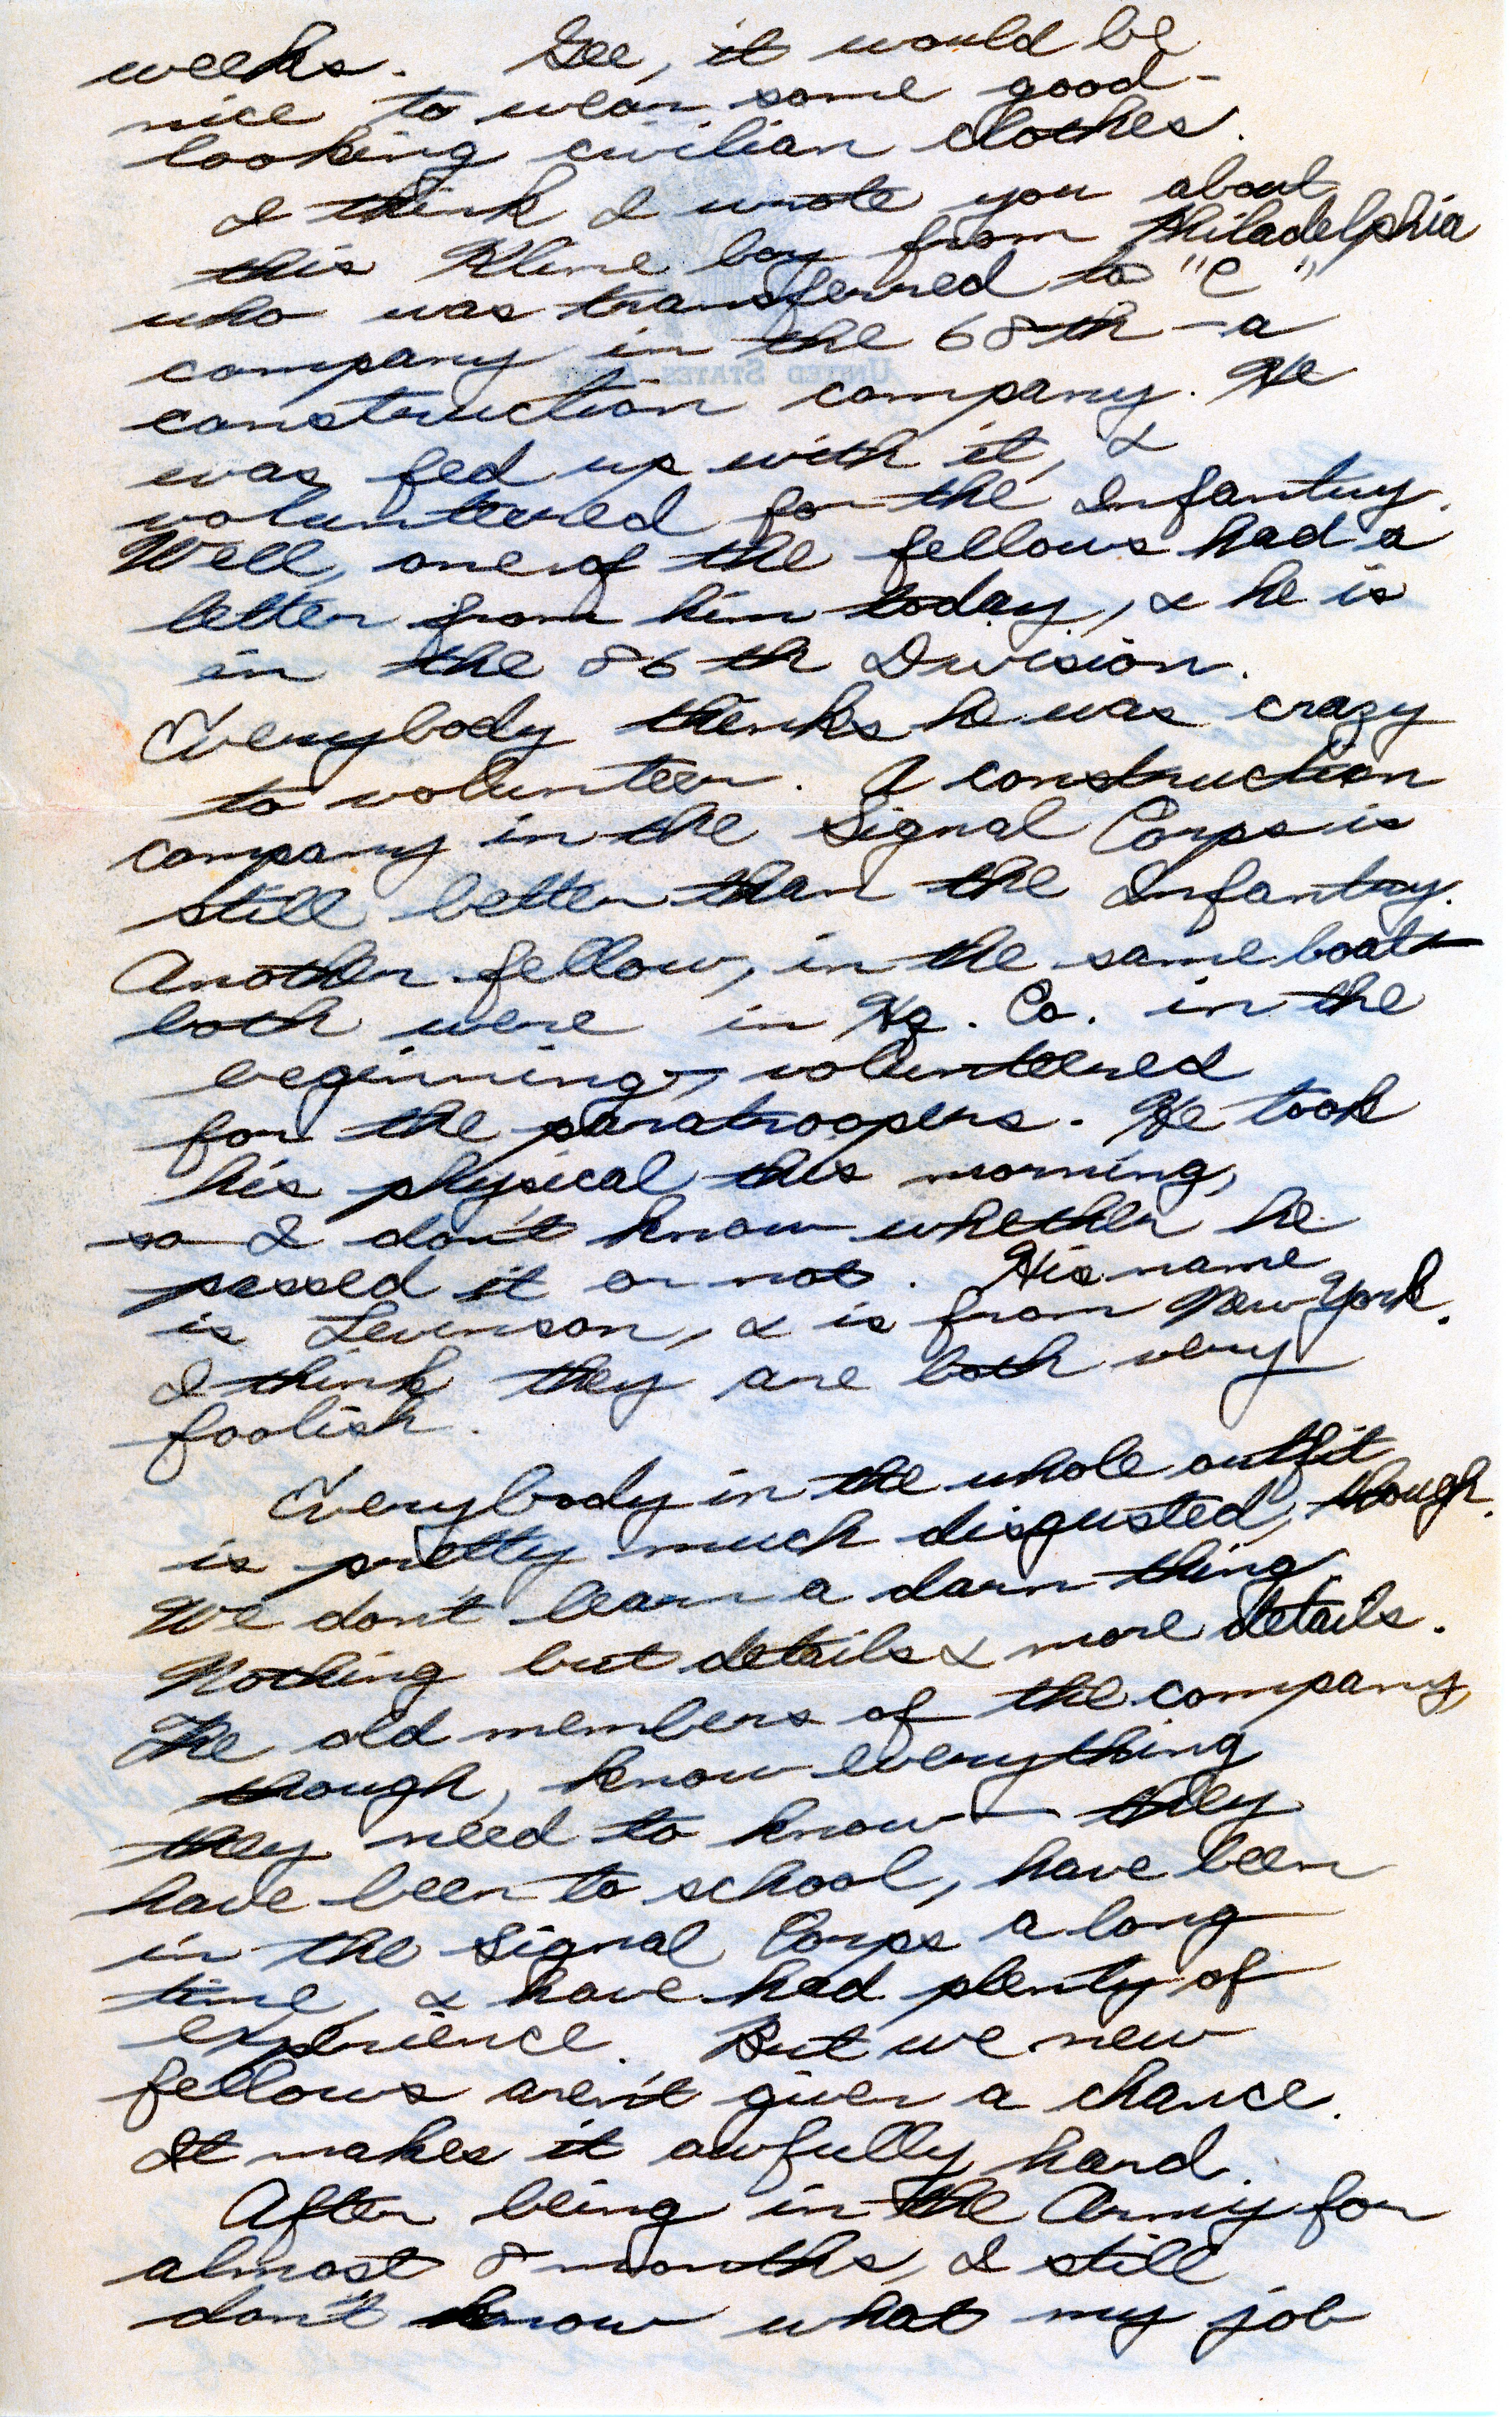 weeks. Gee, it would be
nice to wear some good-
looking civilian clothes.
I think I wrote you about
this Kline boy from Philadelphia
who was transferred to "C"
company in the 68th - a
UNITED STATES ARMY
construction company. He
was fed up with it, &
volunteered for the Infantry.
Well, one of the fellows had a
letter from him today, & he is
in the 86th Division.
Everybody thinks he was crazy
to volunteer. A construction
company in the Signal Corps is
still better than the Infantry.
Another fellow, in the same boat -
both were in Hq. Co. in the
beginning -, volunteered
for the paratroopers. He took
his physical this morning,
so I don't know whether he
passed it or not. His name
is Levinson, & is from New York.
I think they are both very
foolish.
Everybody in the whole outfit
is pretty much disgusted, though.
We don't learn a darn thing.
Nothing but details & more details.
The old members of the company,
though, know everything
they need to know - they
have been to school, have been
in the Signal Corps a long
time, & have had plenty of
experience. But we new
fellows aren't given a chance.
It makes it awfully hard.
After being in the Army for
almost 8 months, I still
don't know what my job